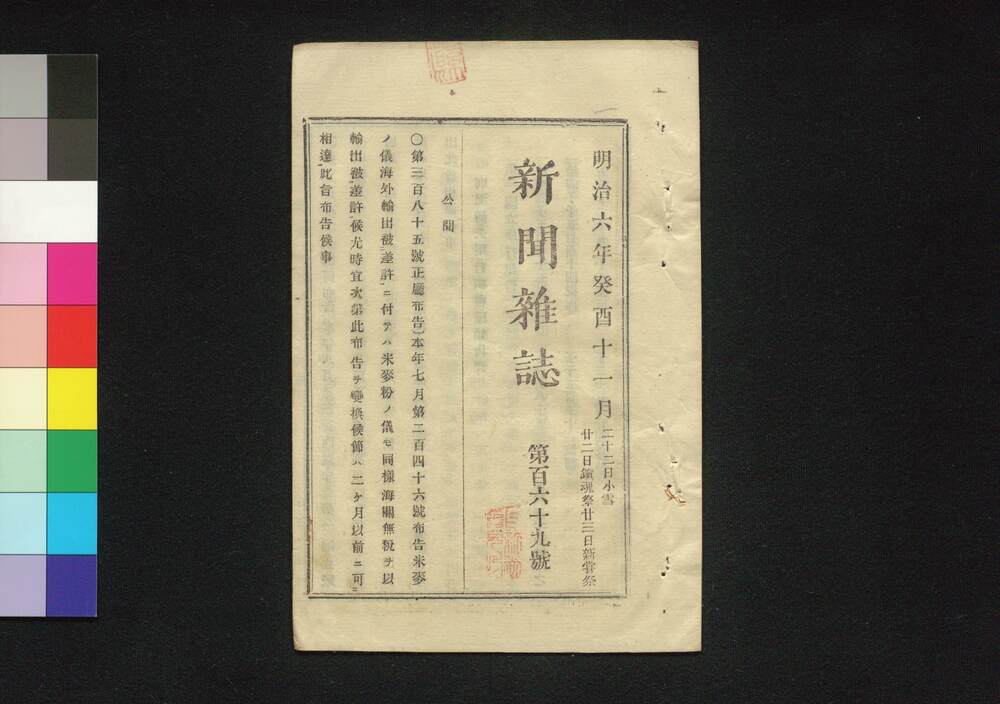 明治六年癸酉十一月
二十二日小雪
廿二日鎭魂祭廿三日新嘗祭
新聞雜誌
第百六十九號
公聞
〇第三百八十五號正廳布告〕本年七月第二百四十六號布告米麥
ノ儀海外輸出被差許ニ付テハ米麥粉ノ儀モ同樣海關無稅ヲ以
輸出被差許候尤時宜次第此布告ヲ變換候節ハ二ケ月以前ニ可
相達此旨布告候事